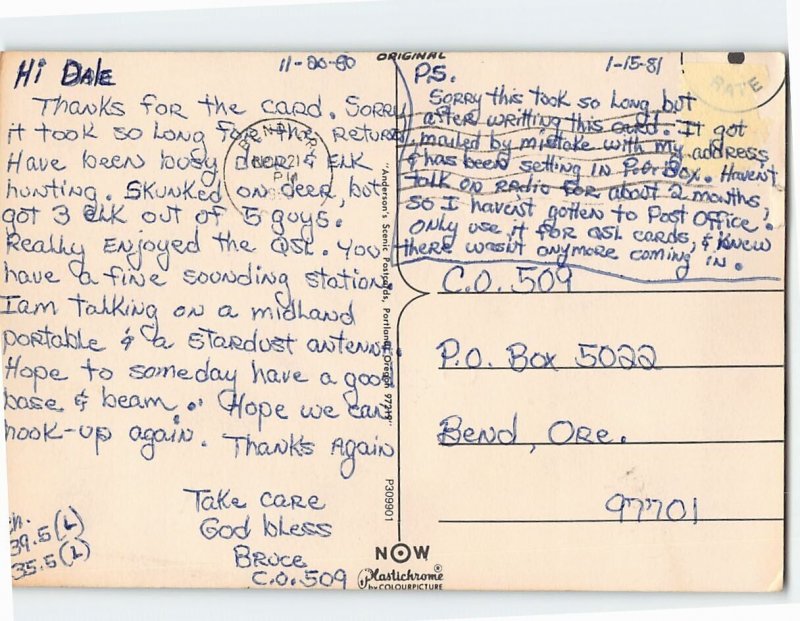 11-20-80
Hi Dale
Thanks for the card. Sorry
it took so long for the return
Have been busy deer & elk
hunting. Skunked on deer, but
got 3 elk out of 5 guys.
Really enjoyed the QSL. You
have a fine sounding station.
I am talking on a midland
portable & a stardust antenna.
Hope to someday have a good
base & beam. Hope we can
hook-up again. Thanks Again
Take care
God bless
Bruce
C.O. 509
ch.
39.5 (L)
35.5 (L)
ORIGINAL
"Anderson's Scenic Postcards, Portland, Oregon 97219"
P309901
NOW
Plastichrome®
by COLOURPICTURE
1-15-81
P.S.
Sorry this took so long, but
after writting this card. It got
mailed by mistake with my address
& has been setting in P.O. Box. Haven't
talk on radio for about 2 months,
so I haven't gotten to Post Office.
Only use it for QSL cards, & knew
there wasn't anymore coming in.
C.O. 509
P.O. Box 5022
Bend, Ore.
97701
BEND, OR
NOV 21
PM
RATE